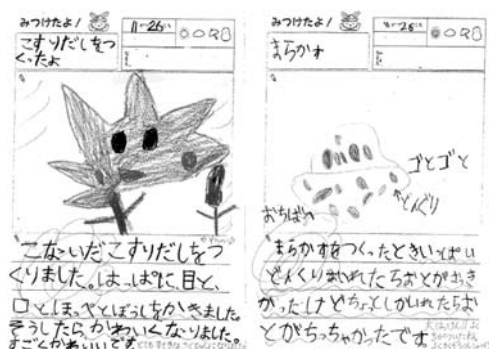 みつけたよ!
11がつ26にち
こすりだしをつ
くったよ
こないだこすりだしをつ
くりました。はっぱに、目と、
口と、ほっぺとぼうしをかきました。
そうしたら、かわいくなりました。
すごくかわいいです。
みつけたよ!
11がつ26にち
まらかす
ゴとゴと
どんぐり
おちば
まらかすをつくったときいっぱい
どんぐりをいれたらおとがおっき
かったけどちょっとしかいれたらお
とがちっちゃかったです